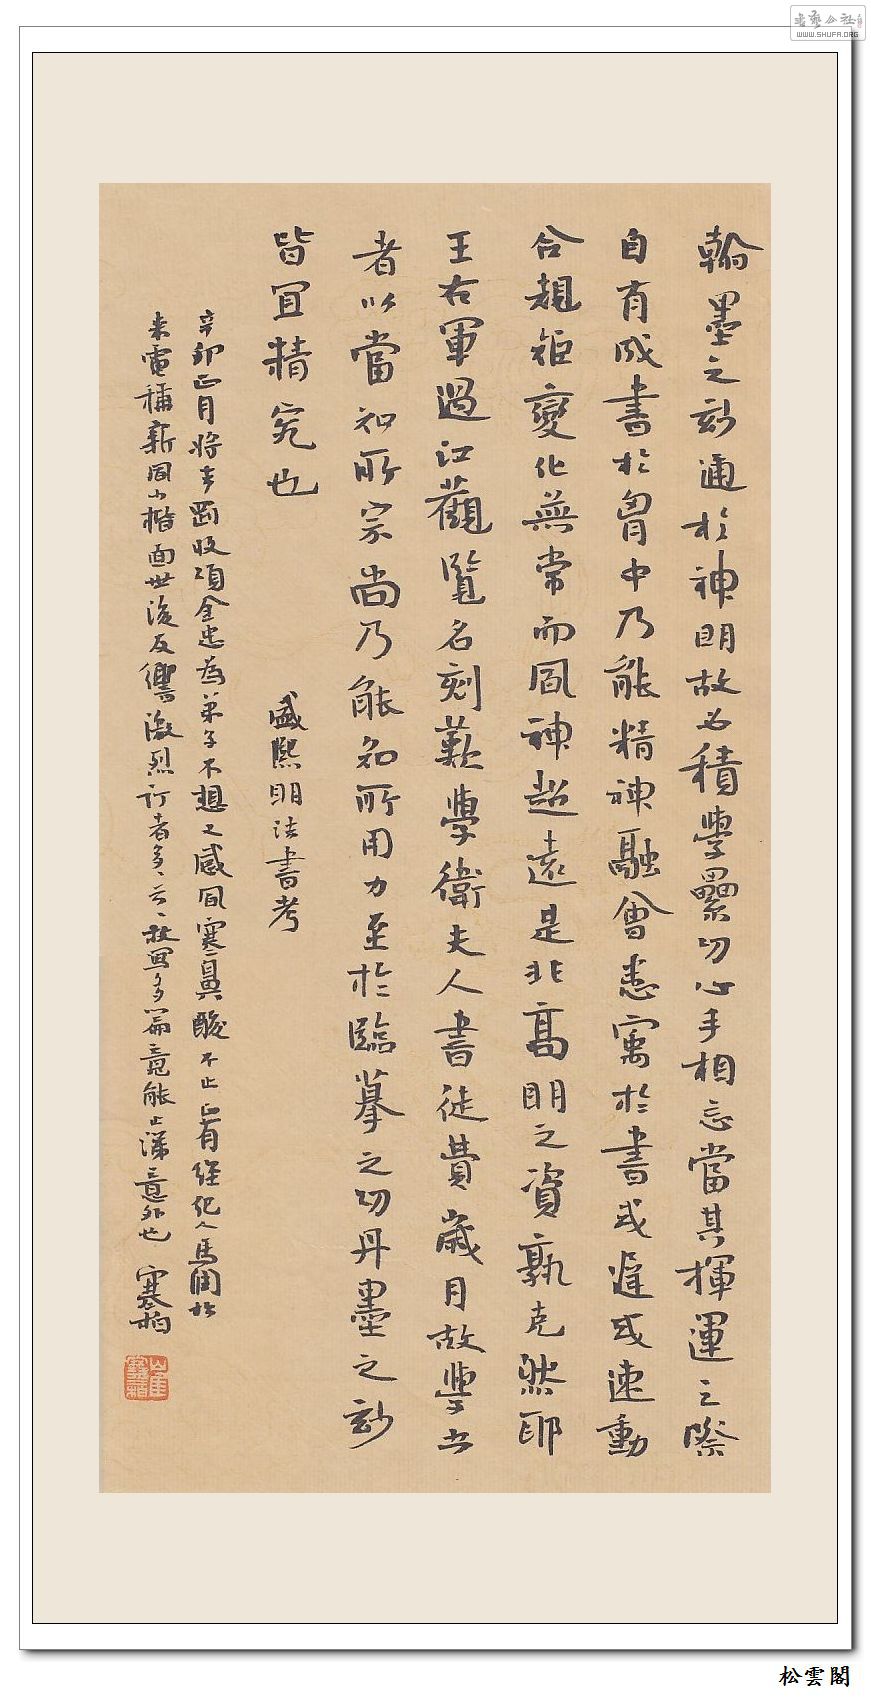 翰墨之玅通於神明故必積學累功心手相忘當其揮運之際
自有成書於胷中乃能精神融會悉寓於書或遲或速動
合規矩變化無常而風神超遠是非高明之資孰克然耶
王右軍過江觀覽名刻歎學衛夫人書徒費歲月故學書
者以當知所宗尚乃能知所用力至於臨摹之功丹墨之玅
皆宜精究也
盛熙明法書考
辛卯正月將去
收項金忠為弟子不想又感風寒鼻酸不止正有經紀人馬
來電稱新
小楷面世後反響激烈訂者多多云云故寫多篇竟能止涕意外也 寒栢
書藝公社
WWW.SHUFA.ORG
松雲閣